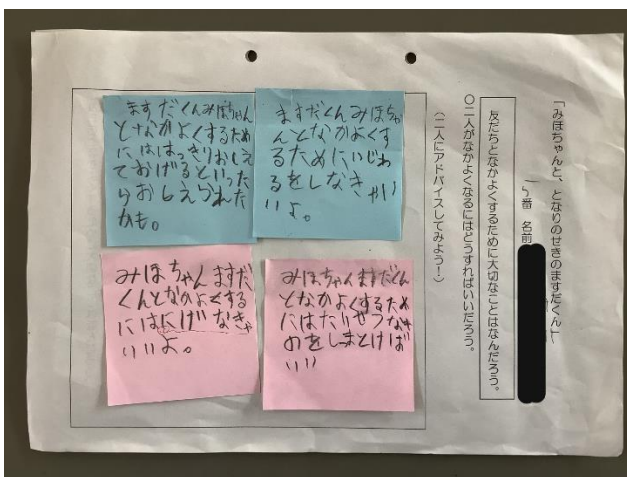 「みほちゃんと、となりのせきのますだくん」
番 名前
友だちとなかよくするために大切なことはなんだろう。
〇二人がなかよくなるにはどうすればいいだろう。
(二人にアドバイスしてみよう!)
ますだくんみほちゃ
んとなかよくす
るためにいじわ
るをしなきゃい
いよ。
ますだくんみほちゃん
となかよくするため
にははっきりおしえ
ておげるといった
らおしえづれた
かも。
みほちゃんますだくん
となかよくするため
にはたりや
のをしまとけば
いい
みほちゃんますだ
くんとなかよくする
にはにげなきゃ
いいよ。